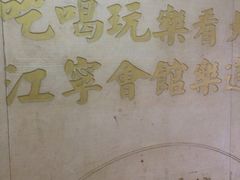 吃喝玩樂看
江寧會館樂